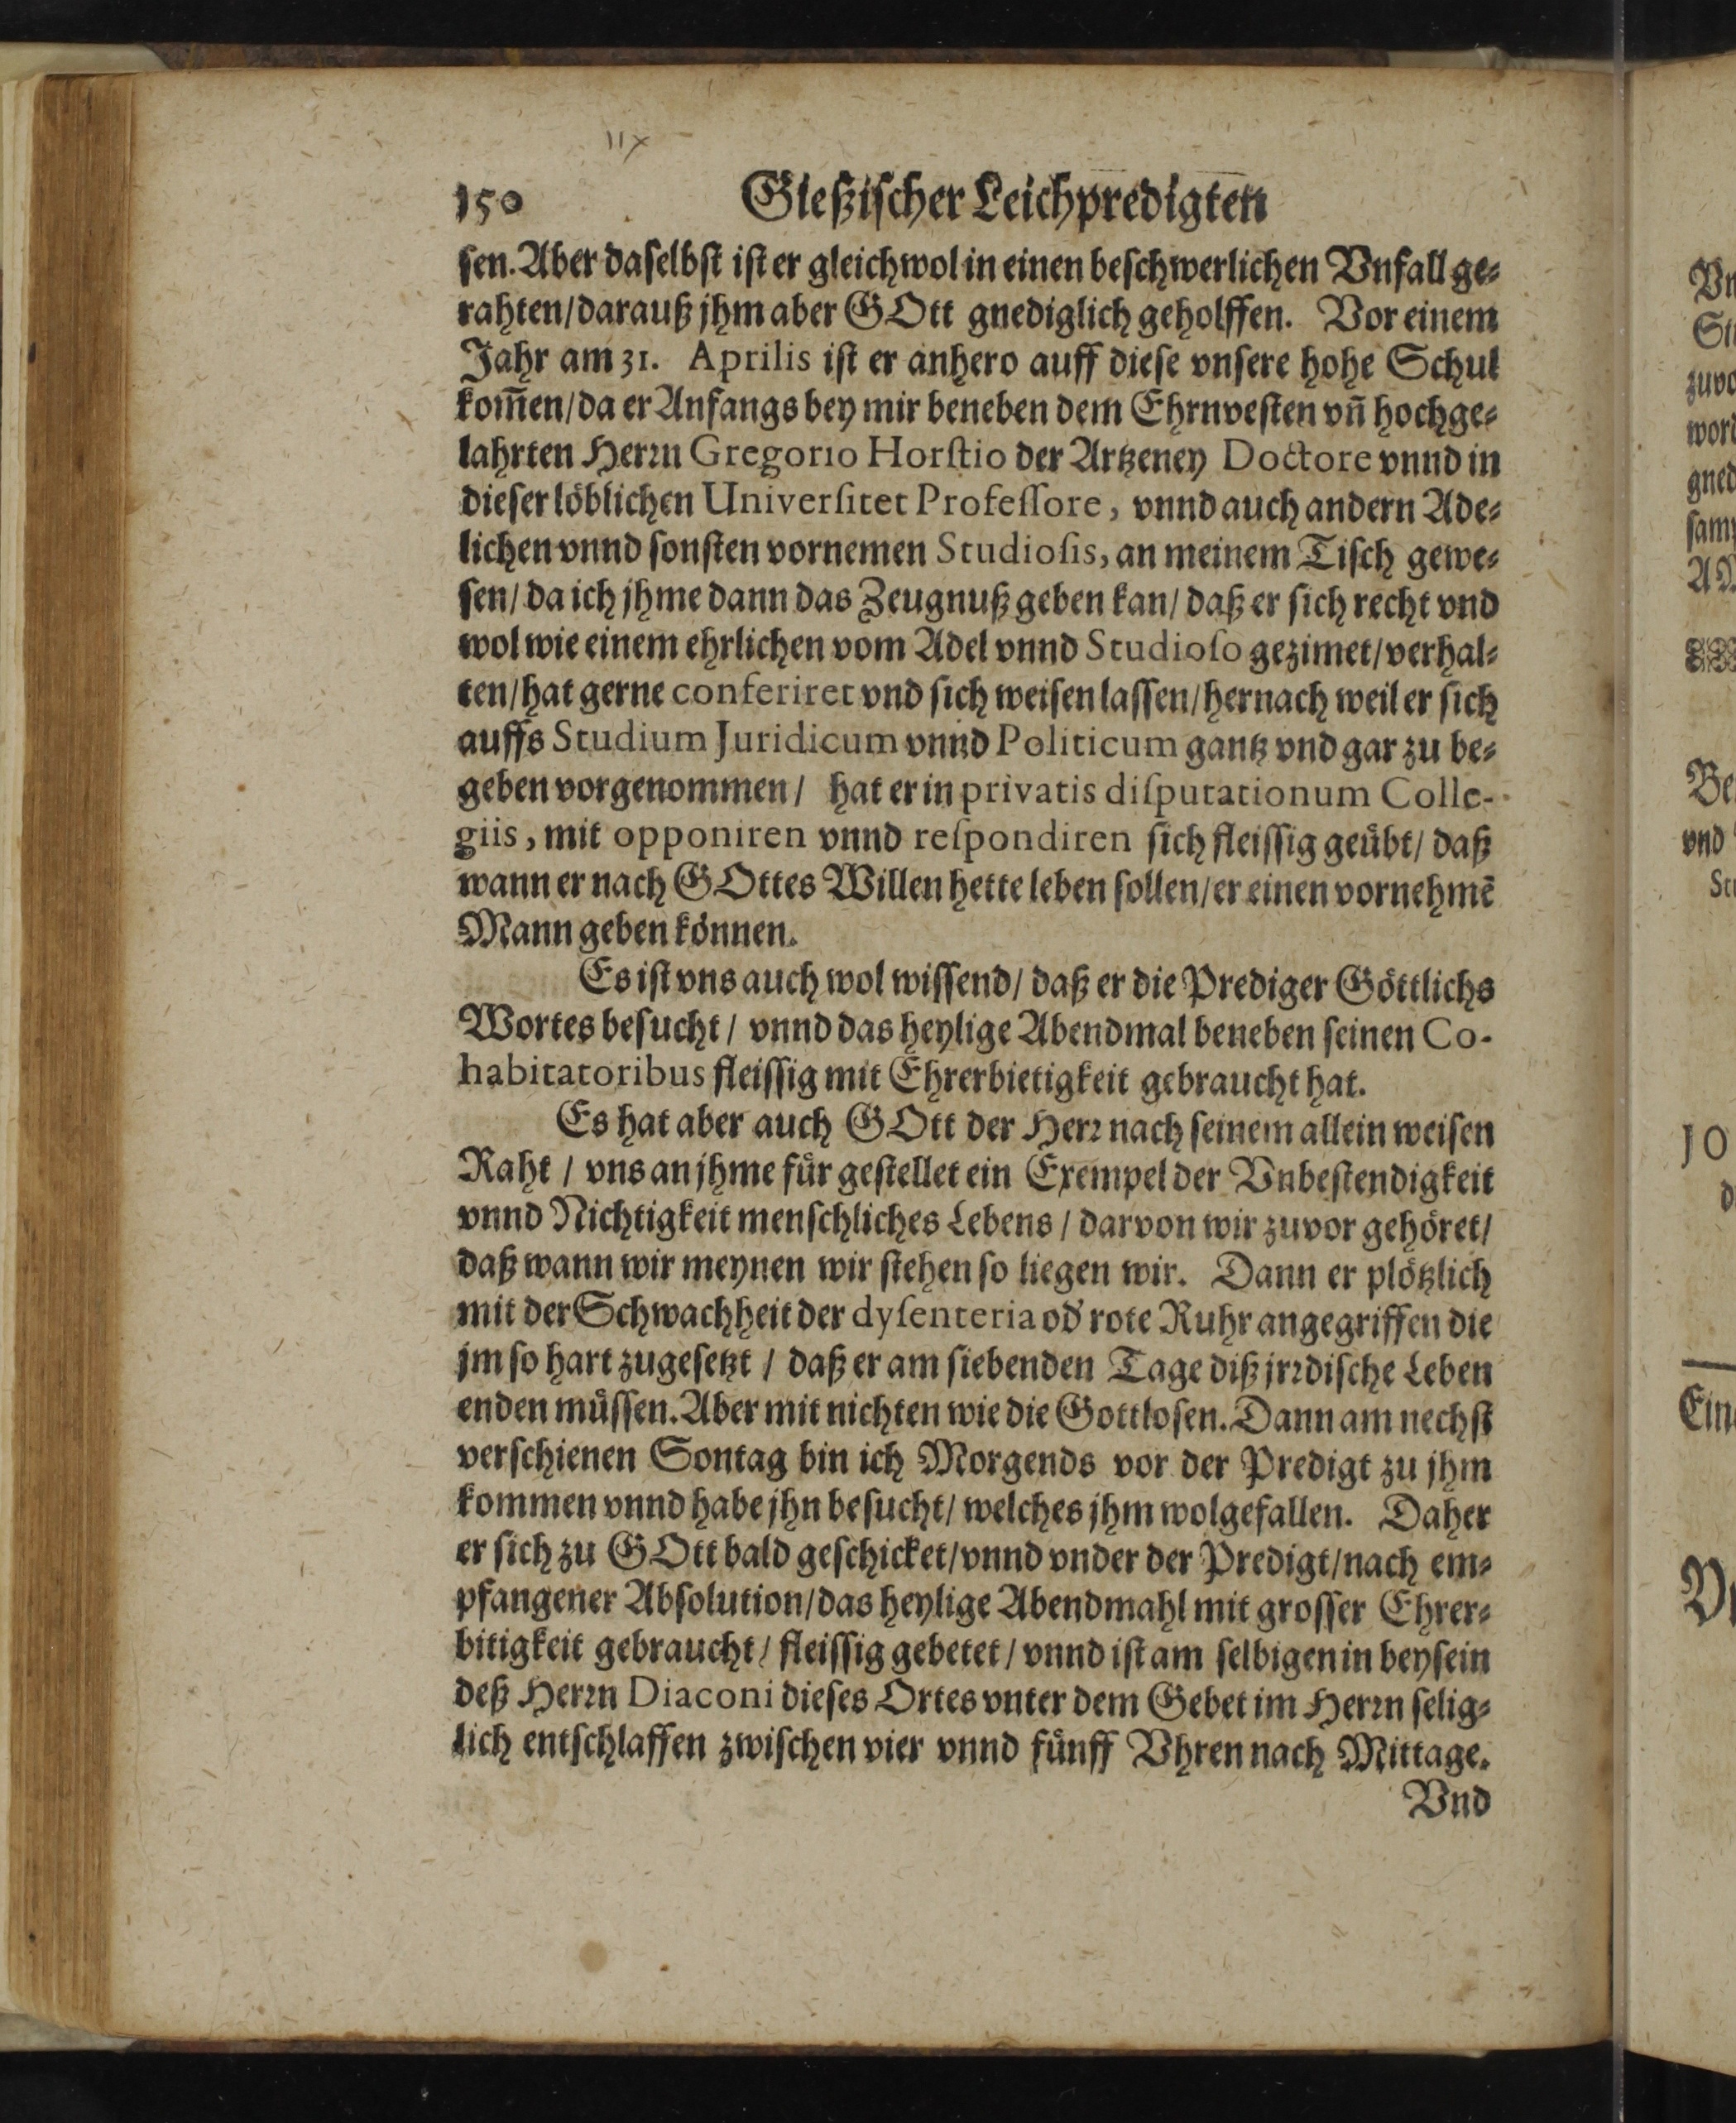 IIX
150 Gießischer Leichpredigten
sen. Aber daselbst ist er gleichwol in einen beschwerlichen Vnfall ge-
rahten/ darauß jhm aber GOtt gnediglich geholffen. Vor einem
Jahr am 31. Aprilis ist er anhero auff diese vnsere hohe Schul
kom̄en/ da er Anfangs bey mir beneben dem Ehrnvesten vn̄ hochge-
lahrten Herrn Gregorio Horſtio der Artzeney Doctore vnnd in
dieser löblichen Univerſitet Profeſſore, vnnd auch andern Ade-
lichen vnnd sonsten vornemen Studioſis, an meinem Tisch gewe-
sen/ da ich jhme dann das Zeugnuß geben kan/ daß er sich recht vnd
wol wie einem ehrlichen vom Adel vnnd Studioſo gezimet/ verhal-
ten/ hat gerne conferiret vnd sich weisen lassen/ hernach weil er sich
auffs Studium Juridicum vnnd Politicum gantz vnd gar zu be-
geben vorgenommen/ hat er in privatis diſputationum Colle-
giis, mit opponiren vnnd reſpondiren sich fleissig geübt/ daß
wann er nach GOttes Willen hette leben sollen/ er einen vornehmē
Mann geben können.
Es ist vns auch wol wissend/ daß er die Prediger Göttlichs
Wortes besucht/ vnnd das heylige Abendmal beneben seinen Co-
habitatoribus fleissig mit Ehrerbietigkeit gebraucht hat.
Es hat aber auch GOtt der Herr nach seinem allein weisen
Raht/ vns an jhme für gestellet ein Exempel der Vnbestendigkeit
vnnd Nichtigkeit menschliches Lebens/ darvon wir zuvor gehöret/
daß wann wir meynen wir stehen so liegen wir. Dann er plötzlich
mit der Schwachheit der dyſenteria od' rote Ruhr angegriffen die
jm so hart zugesetzt/ daß er am siebenden Tage diß jrrdische Leben
enden müssen. Aber mit nichten wie die Gottlosen. Dann am nechst
verschienen Sontag bin ich Morgends vor der Predigt zu jhm
kommen vnnd habe jhn besucht/ welches jhm wolgefallen. Daher
er sich zu GOtt bald geschicket/ vnnd vnder der Predigt/ nach em-
pfangener Absolution/ das heylige Abendmahl mit grosser Ehrer-
bitigkeit gebraucht/ fleissig gebetet/ vnnd ist am selbigen in beysein
deß Herrn Diaconi dieses Ortes vnter dem Gebet im Herrn selig-
lich entschlaffen zwischen vier vnnd fünff Vhren nach Mittage.
Vnd